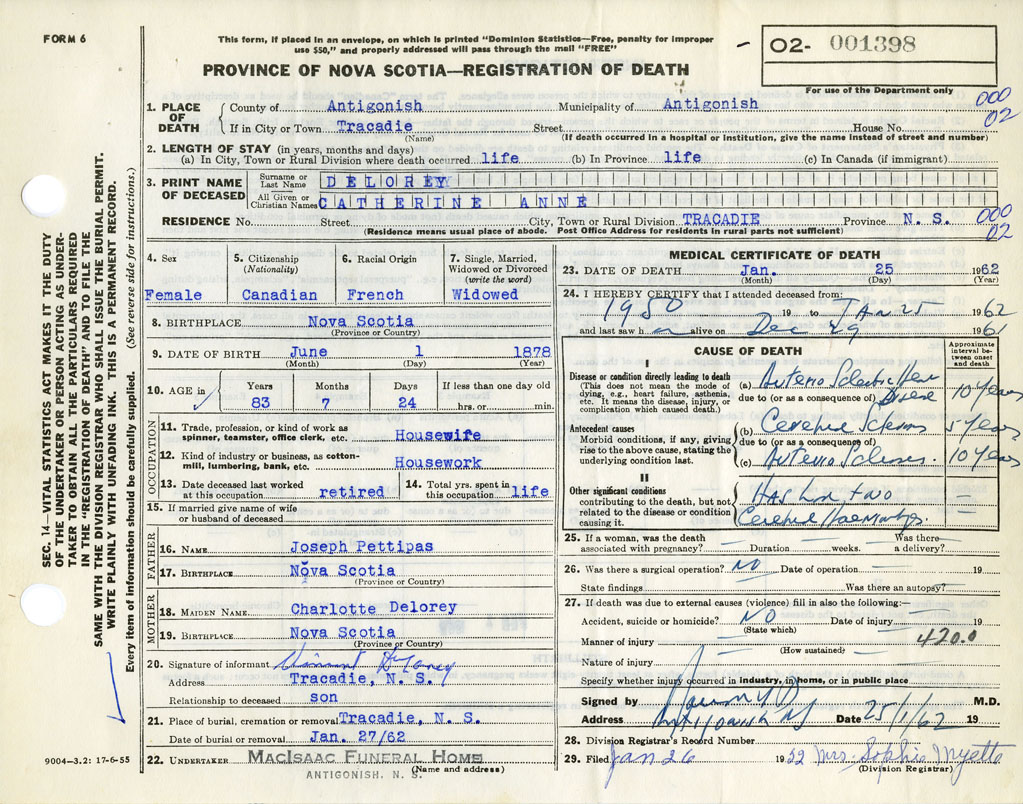 FORM 6
This form, if placed in an envelope, on which is printed "Dominion Statistics—Free, penalty for improper
use $50," and properly addressed will pass through the mail "FREE"
PROVINCE OF NOVA SCOTIA—REGISTRATION OF DEATH
02- 001398
For use of the Department only
000
02
1. PLACE OF DEATH
County of Antigonish Municipality of Antigonish
If in City or Town Tracadie Street House No.
(Name) (If death occurred in a hospital or institution, give the name instead of street and number)
2. LENGTH OF STAY (in years, months and days)
(a) In City, Town or Rural Division where death occurred life (b) In Province life (c) In Canada (if immigrant)
3. PRINT NAME OF DECEASED
Surname or Last Name DELOREY
All Given or Christian Names CATHERINE ANNE
RESIDENCE No. Street City, Town or Rural Division TRACADIE Province N. S.
(Residence means usual place of abode. Post Office Address for residents in rural parts not sufficient)
000
02
4. Sex
Female
5. Citizenship
(Nationality)
Canadian
6. Racial Origin
French
7. Single, Married,
Widowed or Divorced
(write the word)
Widowed
8. BIRTHPLACE Nova Scotia
(Province or Country)
9. DATE OF BIRTH June 1 1878
(Month) (Day) (Year)
10. AGE in
Years Months Days If less than one day old
83 7 24 hrs. or min.
OCCUPATION
11. Trade, profession, or kind of work as
spinner, teamster, office clerk, etc. Housewife
12. Kind of industry or business, as cotton-
mill, lumbering, bank, etc. Housework
13. Date deceased last worked
at this occupation retired
14. Total yrs. spent in
this occupation life
15. If married give name of wife
or husband of deceased
FATHER
16. NAME Joseph Pettipas
17. BIRTHPLACE Nova Scotia
(Province or Country)
MOTHER
18. MAIDEN NAME Charlotte Delorey
19. BIRTHPLACE Nova Scotia
(Province or Country)
20. Signature of informant
Address Tracadie, N. S.
Relationship to deceased son
21. Place of burial, cremation or removal Tracadie, N. S.
Date of burial or removal Jan. 27/62
22. UNDERTAKER MACISAAC FUNERAL HOME
ANTIGONISH, N. S. (Name and address)
MEDICAL CERTIFICATE OF DEATH
23. DATE OF DEATH Jan. 25 1962
(Month) (Day) (Year)
24. I HEREBY CERTIFY that I attended deceased from:
1950 19 to JAN 25 1962
and last saw h alive on Dec 29 1961
CAUSE OF DEATH
Approximate
interval be-
tween onset
and death
I
Disease or condition directly leading to death
(This does not mean the mode of
dying, e.g., heart failure, asthenia,
etc. It means the disease, injury, or
complication which caused death.)
(a) Arterio Sclerotic Heart
due to (or as a consequence of) Disease 10 years
Antecedent causes
Morbid conditions, if any, giving
rise to the above cause, stating the
underlying condition last.
(b) Cerebral Sclerosis 5 years
due to (or as a consequence of)
(c) Arterio Sclerosis 10 years
II
Other significant conditions
contributing to the death, but not
related to the disease or condition
causing it.
Has had two
Cerebral Haemorrhages.
25. If a woman, was the death Was there
associated with pregnancy? Duration weeks. a delivery?
26. Was there a surgical operation? NO Date of operation 19
State findings Was there an autopsy?
27. If death was due to external causes (violence) fill in also the following:—
Accident, suicide or homicide? NO Date of injury 19
(State which)
Manner of injury 420.0
(How sustained)
Nature of injury
Specify whether injury occurred in industry, in home, or in public place
Signed by M.D.
Address Antigonish NS Date 25/1/62 19
28. Division Registrar's Record Number
29. Filed Jan 26 19 Mrs. Sophie Myette
(Division Registrar)
SEC. 14—VITAL STATISTICS ACT MAKES IT THE DUTY
OF THE UNDERTAKER OR PERSON ACTING AS UNDER-
TAKER TO OBTAIN ALL THE PARTICULARS REQUIRED
IN THE "REGISTRATION OF DEATH" AND TO FILE THE
SAME WITH THE DIVISION REGISTRAR WHO SHALL ISSUE THE BURIAL PERMIT.
WRITE PLAINLY WITH UNFADING INK. THIS IS A PERMANENT RECORD.
Every item of information should be carefully supplied. (See reverse side for instructions.)
9004-3.2: 17-6-55